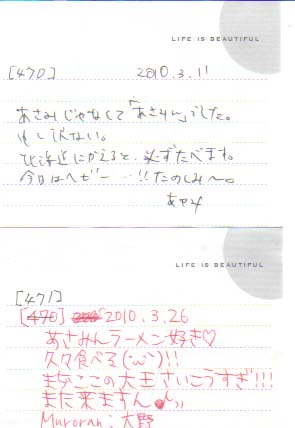 LIFE IS BEAUTIFUL
[470] 2010.3.11
あさみじゃなくて「あさりん」でした。
もし訳ない。
北海道にかえると、必ずたべます。
今日はヘビー…!!たのしみ〜。
あやみ
LIFE IS BEAUTIFUL
[471]
[470] 2010.3.26
あさみんラーメン好き♡
久々食べる(・ω・)!!
まぢここの大王さいこうすぎ!!!
また来ますん
Muroran: 大野